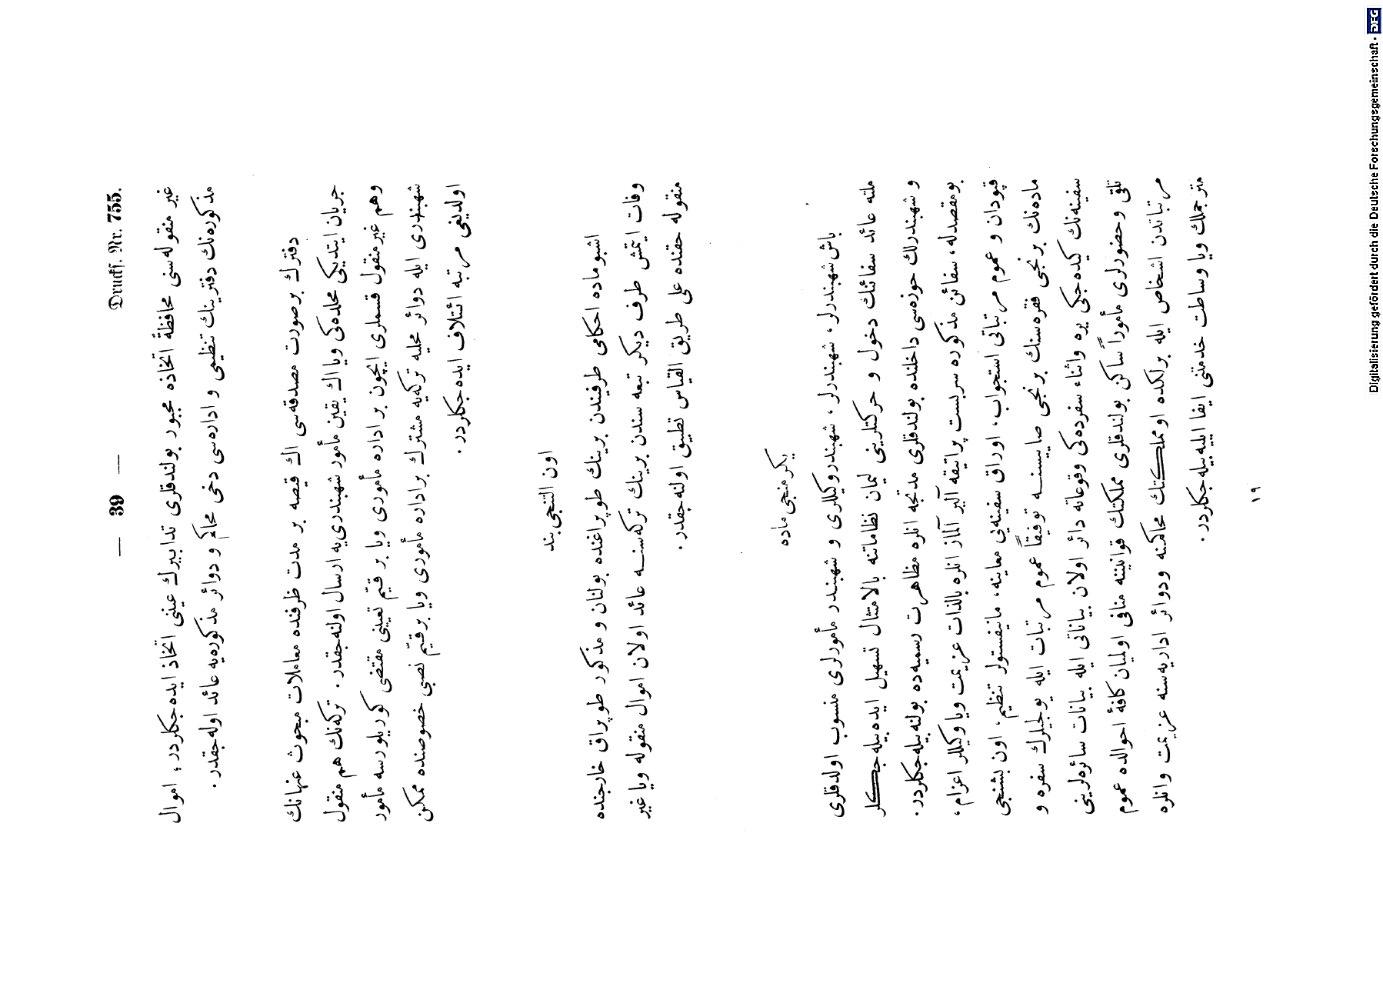 — 39 —
Druck. Nr. 755.
غير منقوله سنی محافظةً اتخاذه مجبور بولندقلری تدابيرك عينی اتخاذ ايده جكلردر ؛ اموال
مذكوره نك دفترينك تنظيمی و اداره سی دخی محاكم و دوائر مذكوره يه عائد اوله جقدر .
دفترك برصورت مصدقه سی اك قيصه بر مدت ظرفنده معاملات مبحوث عنهانك
جريان ايتديكی محلده كی ويا اك يقين مأمور شهبندری يه ارسال اولنه جقدر . تركه نك هم منقول
وهم غير منقول قسملری ايچون بر اداره مأموری ويا بر قيم تعيينی مقتضی كوريلورسه مأمور
شهبندری ايله دوائر محليه تركه يه مشترك بر اداره مأموری ويا بر قيم نصبی خصوصنده ممكن
اولديغی مرتبه ائتلاف ايده جكلردر .
اون التنجی بند
اشبو ماده احكامی طرفيندن برينك طوپراغنده بولنان و مذكور طوپراق خارجنده
وفات ايتمش طرف ديكر تبعه سندن برينك تركه سنه عائد اولان اموال منقوله ويا غير
منقوله حقنده علی طريق القياس تطبيق اولنه جقدر .
يكرمنجی ماده
باش شهبندرلر ، شهبندرلر ، شهبندر وكيللری و شهبندر مأمورلری منسوب اولدقلری
ملته عائد سفائنك دخول و حركتلرينی ليمان نظاماتنه بالامتثال تسهيل ايده بيله جكلر
و شهبندرلك حوزه سی داخلنده بولندقلری مدتجه انلره مظاهرت رسميه ده بولنه بيله جكلردر .
بومقصدله ، سفائن مذكوره سربست پراتيقه آلير آلماز انلره بالذات عزيمت ويا وكيللر اعزام ،
قپودان و عموم مرتباتی استجواب ، اوراق سفينه يی معاينه ، مانيفستولر تنظيم ، اون بشنجی
ماده نك برنجی فقره سنك برنجی صاييسنه توفيقاً عموم مرتبات ايله يولجيلرك سفره و
سفينه نك كيده جكی يره واثناء سفرده كی وقوعاته دائر اولان بياناتی ايله بيانات سائره لرينی
تلقی وحضورلری مأموراً ساكن بولندقلری مملكتك قوانيننه منافی اولميان كافۀ احوالده عموم
مرتباتدن اشخاص ايله برلكده اومملكتك محاكمنه ودوائر اداريه سنه عزيمت وانلره
مترجملك ويا وساطت خدمتنی ايفا ايليه بيله جكلردر .
١٩
Digitalisierung gefördert durch die Deutsche Forschungsgemeinschaft - DFG